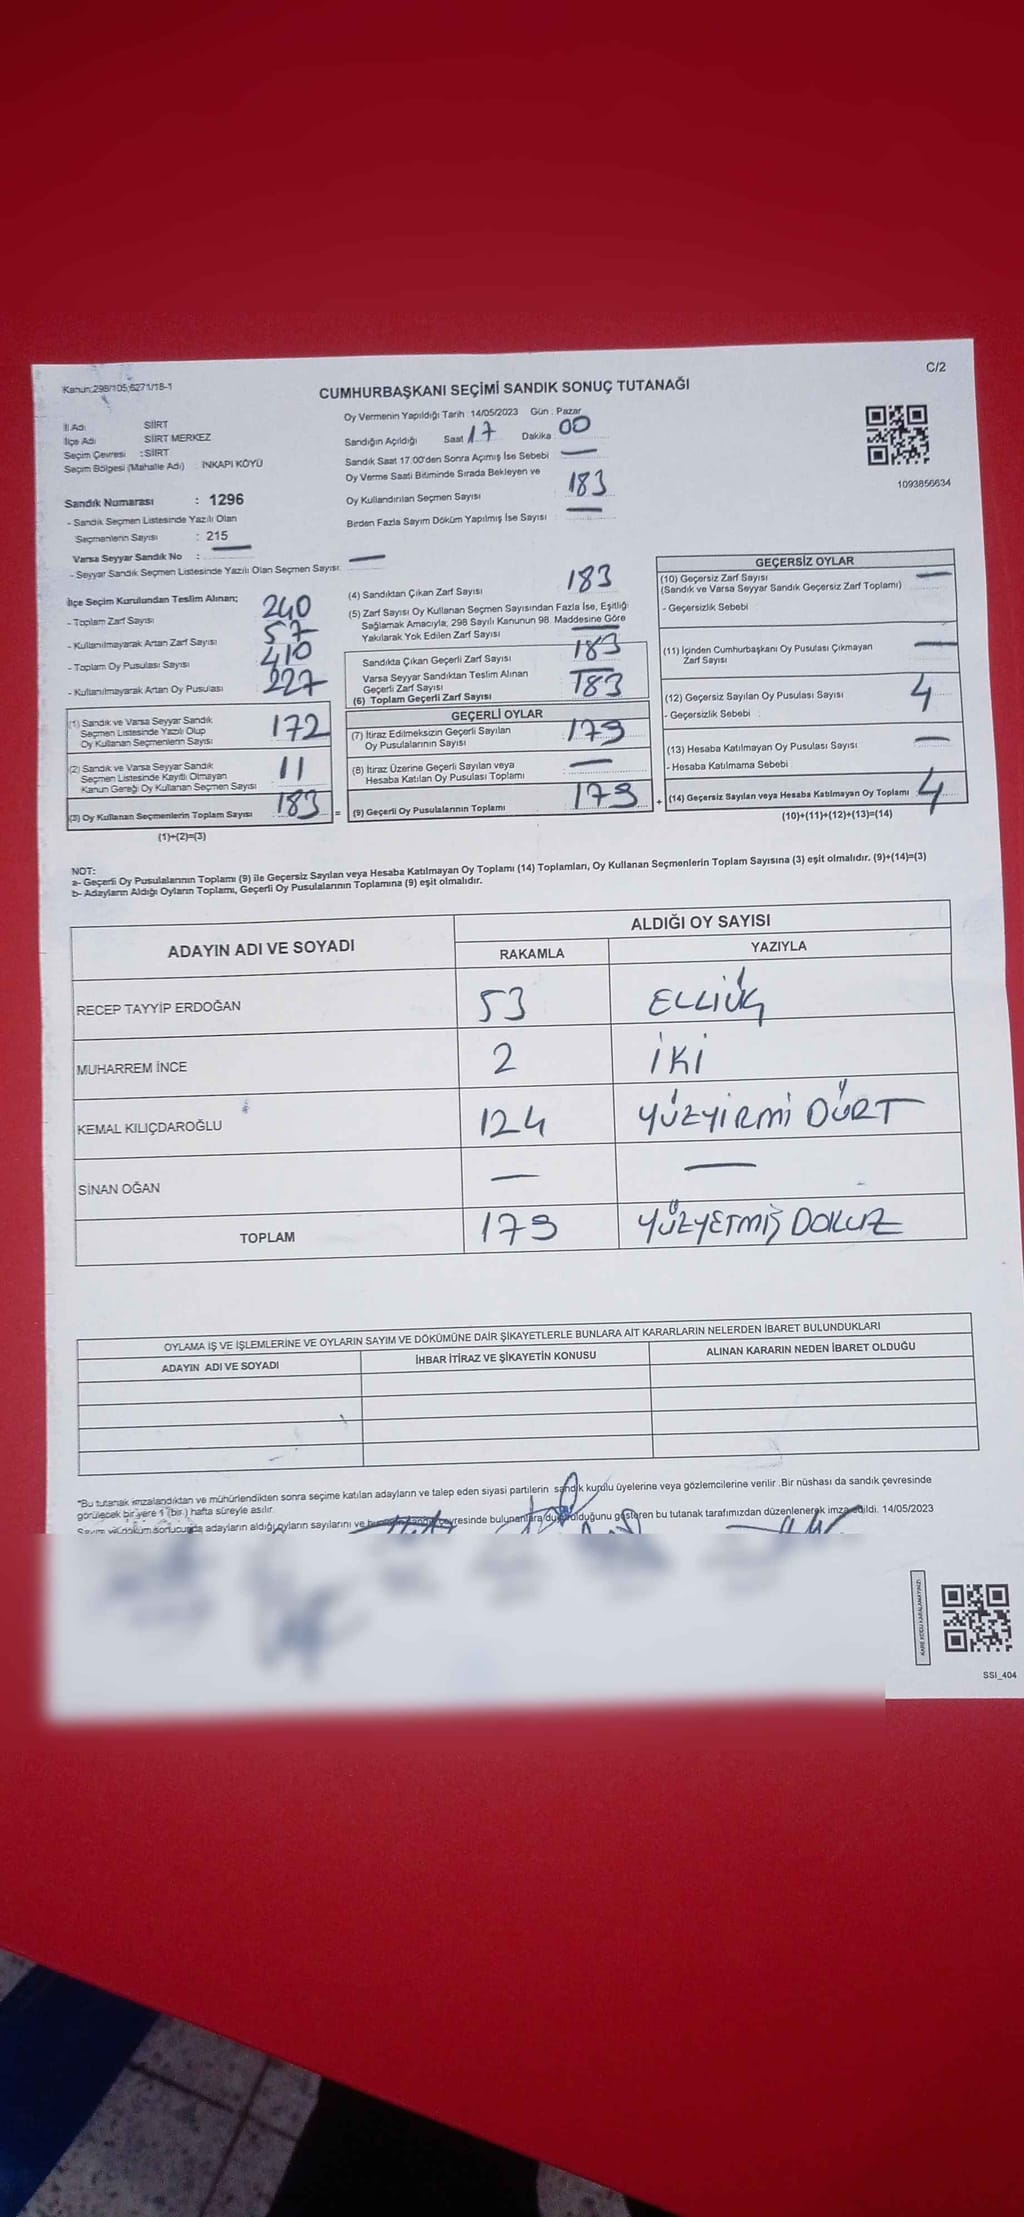 Kanun:298/105;6271/18-1
C/2
CUMHURBAŞKANI SEÇİMİ SANDIK SONUÇ TUTANAĞI
İl Adı SİİRT
İlçe Adı SİİRT MERKEZ
Seçim Çevresi : SİİRT
Seçim Bölgesi (Mahalle Adı) : İNKAPI KÖYÜ
Sandık Numarası : 1296
- Sandık Seçmen Listesinde Yazılı Olan
Seçmenlerin Sayısı : 215
Varsa Seyyar Sandık No : —
- Seyyar Sandık Seçmen Listesinde Yazılı Olan Seçmen Sayısı: —
Oy Vermenin Yapıldığı Tarih : 14/05/2023 Gün : Pazar
Sandığın Açıldığı Saat 17 Dakika 00
Sandık Saat 17:00'den Sonra Açımış İse Sebebi —
Oy Verme Saati Bitiminde Sırada Bekleyen ve
Oy Kullandırılan Seçmen Sayısı 183
Birden Fazla Sayım Döküm Yapılmış İse Sayısı —
1093856634
İlçe Seçim Kurulundan Teslim Alınan;
- Toplam Zarf Sayısı 240
- Kullanılmayarak Artan Zarf Sayısı 57
- Toplam Oy Pusulası Sayısı 410
- Kullanılmayarak Artan Oy Pusulası 227
(1) Sandık ve Varsa Seyyar Sandık
Seçmen Listesinde Yazılı Olup
Oy Kullanan Seçmenlerin Sayısı 172
(2) Sandık ve Varsa Seyyar Sandık
Seçmen Listesinde Kayıtlı Olmayan
Kanun Gereği Oy Kullanan Seçmen Sayısı 11
(3) Oy Kullanan Seçmenlerin Toplam Sayısı 183 =
(1)+(2)=(3)
(4) Sandıktan Çıkan Zarf Sayısı 183
(5) Zarf Sayısı Oy Kullanan Seçmen Sayısından Fazla İse, Eşitliği
Sağlamak Amacıyla, 298 Sayılı Kanunun 98. Maddesine Göre
Yakılarak Yok Edilen Zarf Sayısı —
Sandıkta Çıkan Geçerli Zarf Sayısı 183
Varsa Seyyar Sandıktan Teslim Alınan
Geçerli Zarf Sayısı —
(6) Toplam Geçerli Zarf Sayısı 183
GEÇERLİ OYLAR
(7) İtiraz Edilmeksizin Geçerli Sayılan
Oy Pusulalarının Sayısı 179
(8) İtiraz Üzerine Geçerli Sayılan veya
Hesaba Katılan Oy Pusulası Toplamı —
(9) Geçerli Oy Pusulalarının Toplamı 179 +
GEÇERSİZ OYLAR
(10) Geçersiz Zarf Sayısı —
(Sandık ve Varsa Seyyar Sandık Geçersiz Zarf Toplamı)
- Geçersizlik Sebebi
(11) İçinden Cumhurbaşkanı Oy Pusulası Çıkmayan
Zarf Sayısı —
(12) Geçersiz Sayılan Oy Pusulası Sayısı 4
- Geçersizlik Sebebi :
(13) Hesaba Katılmayan Oy Pusulası Sayısı —
- Hesaba Katılmama Sebebi
(14) Geçersiz Sayılan veya Hesaba Katılmayan Oy Toplamı 4
(10)+(11)+(12)+(13)=(14)
NOT:
a- Geçerli Oy Pusulalarının Toplamı (9) ile Geçersiz Sayılan veya Hesaba Katılmayan Oy Toplamı (14) Toplamları, Oy Kullanan Seçmenlerin Toplam Sayısına (3) eşit olmalıdır. (9)+(14)=(3)
b- Adayların Aldığı Oyların Toplamı, Geçerli Oy Pusulalarının Toplamına (9) eşit olmalıdır.
ADAYIN ADI VE SOYADI ALDIĞI OY SAYISI
RAKAMLA YAZIYLA
RECEP TAYYİP ERDOĞAN 53 ELLİÜÇ
MUHARREM İNCE 2 İKİ
KEMAL KILIÇDAROĞLU 124 YÜZYİRMİ DÖRT
SİNAN OĞAN — —
TOPLAM 179 YÜZYETMİŞ DOKUZ
OYLAMA İŞ VE İŞLEMLERİNE VE OYLARIN SAYIM VE DÖKÜMÜNE DAİR ŞİKAYETLERLE BUNLARA AİT KARARLARIN NELERDEN İBARET BULUNDUKLARI
ADAYIN ADI VE SOYADI İHBAR İTİRAZ VE ŞİKAYETİN KONUSU ALINAN KARARIN NEDEN İBARET OLDUĞU
*Bu tutanak imzalandıktan ve mühürlendikten sonra seçime katılan adayların ve talep eden siyasi partilerin sandık kurulu üyelerine veya gözlemcilerine verilir .Bir nüshası da sandık çevresinde
görülecek bir yere 1 (bir ) hafta süreyle asılır.
Sayım ve döküm sonucunda adayların aldığı oyların sayılarını ve çevresinde bulunanlara duyurulduğunu gösteren bu tutanak tarafımızdan düzenlenerek imza edildi. 14/05/2023
KARE KODU KARALAMAYINIZ!
SSI_404